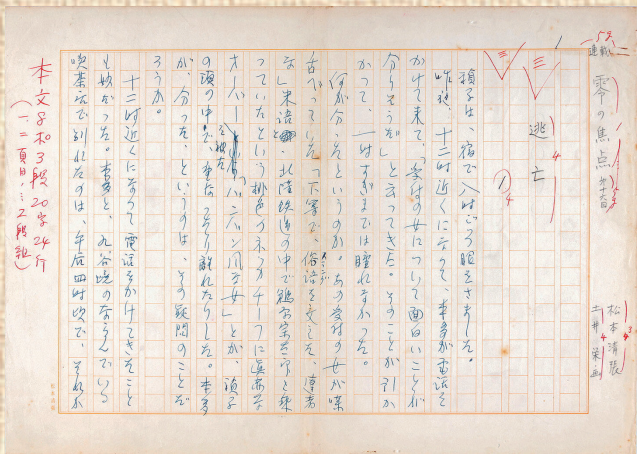 連載
零の焦点 第十六回
松本清張
土井 栄画
逃亡
禎子は、宿で八時ごろ眼をさました。
昨夜、十二時近くになって、本多が電話を
かけて来て、「受付の女について面白いことが
分りそうだ」と言ってきた。そのことが引か
かって、一時すぎまでは睡れなかった。
何が分ったというのか。あの受付の女が喋
言べっていた、下等で、俗語を交じえた、達者
な米語と、北陸鉄道の中で鵜原宗太郎と乗
っていたという桃色のネッカチーフに真赤な
オーバーを被た「パンパン風な女」とが、禎子
の頭の中で、重なったり離れたりした。本多
が、分った、というのは、その疑問のことだ
ろうか。
十二時近くになって電話をかけてきたこと
も妙だった。本多と、九谷焼のならんでいる
喫茶店で別れたのは、午后四時頃で、それか
本文8ポ3段20字24行
(一、二頁目、三二段組)